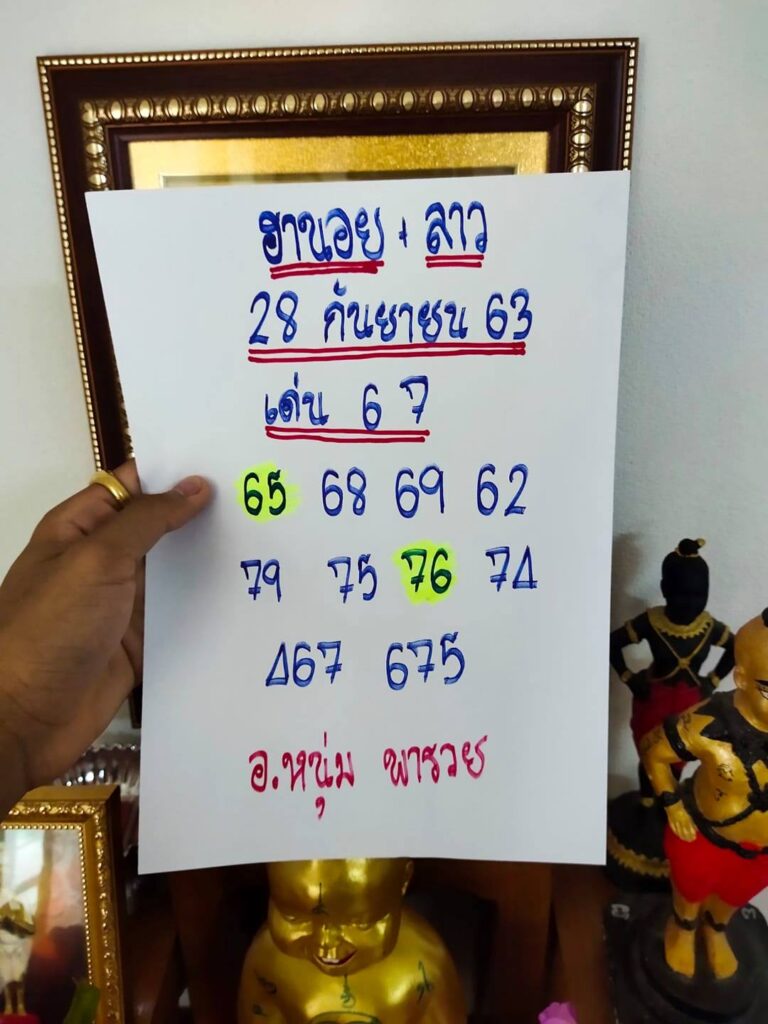 ฮานอย + ลาว
28 กันยายน 63
เด่น 6 7
65 68 69 62
79 75 76 74
467 675
อ.หนุ่ม พารวย